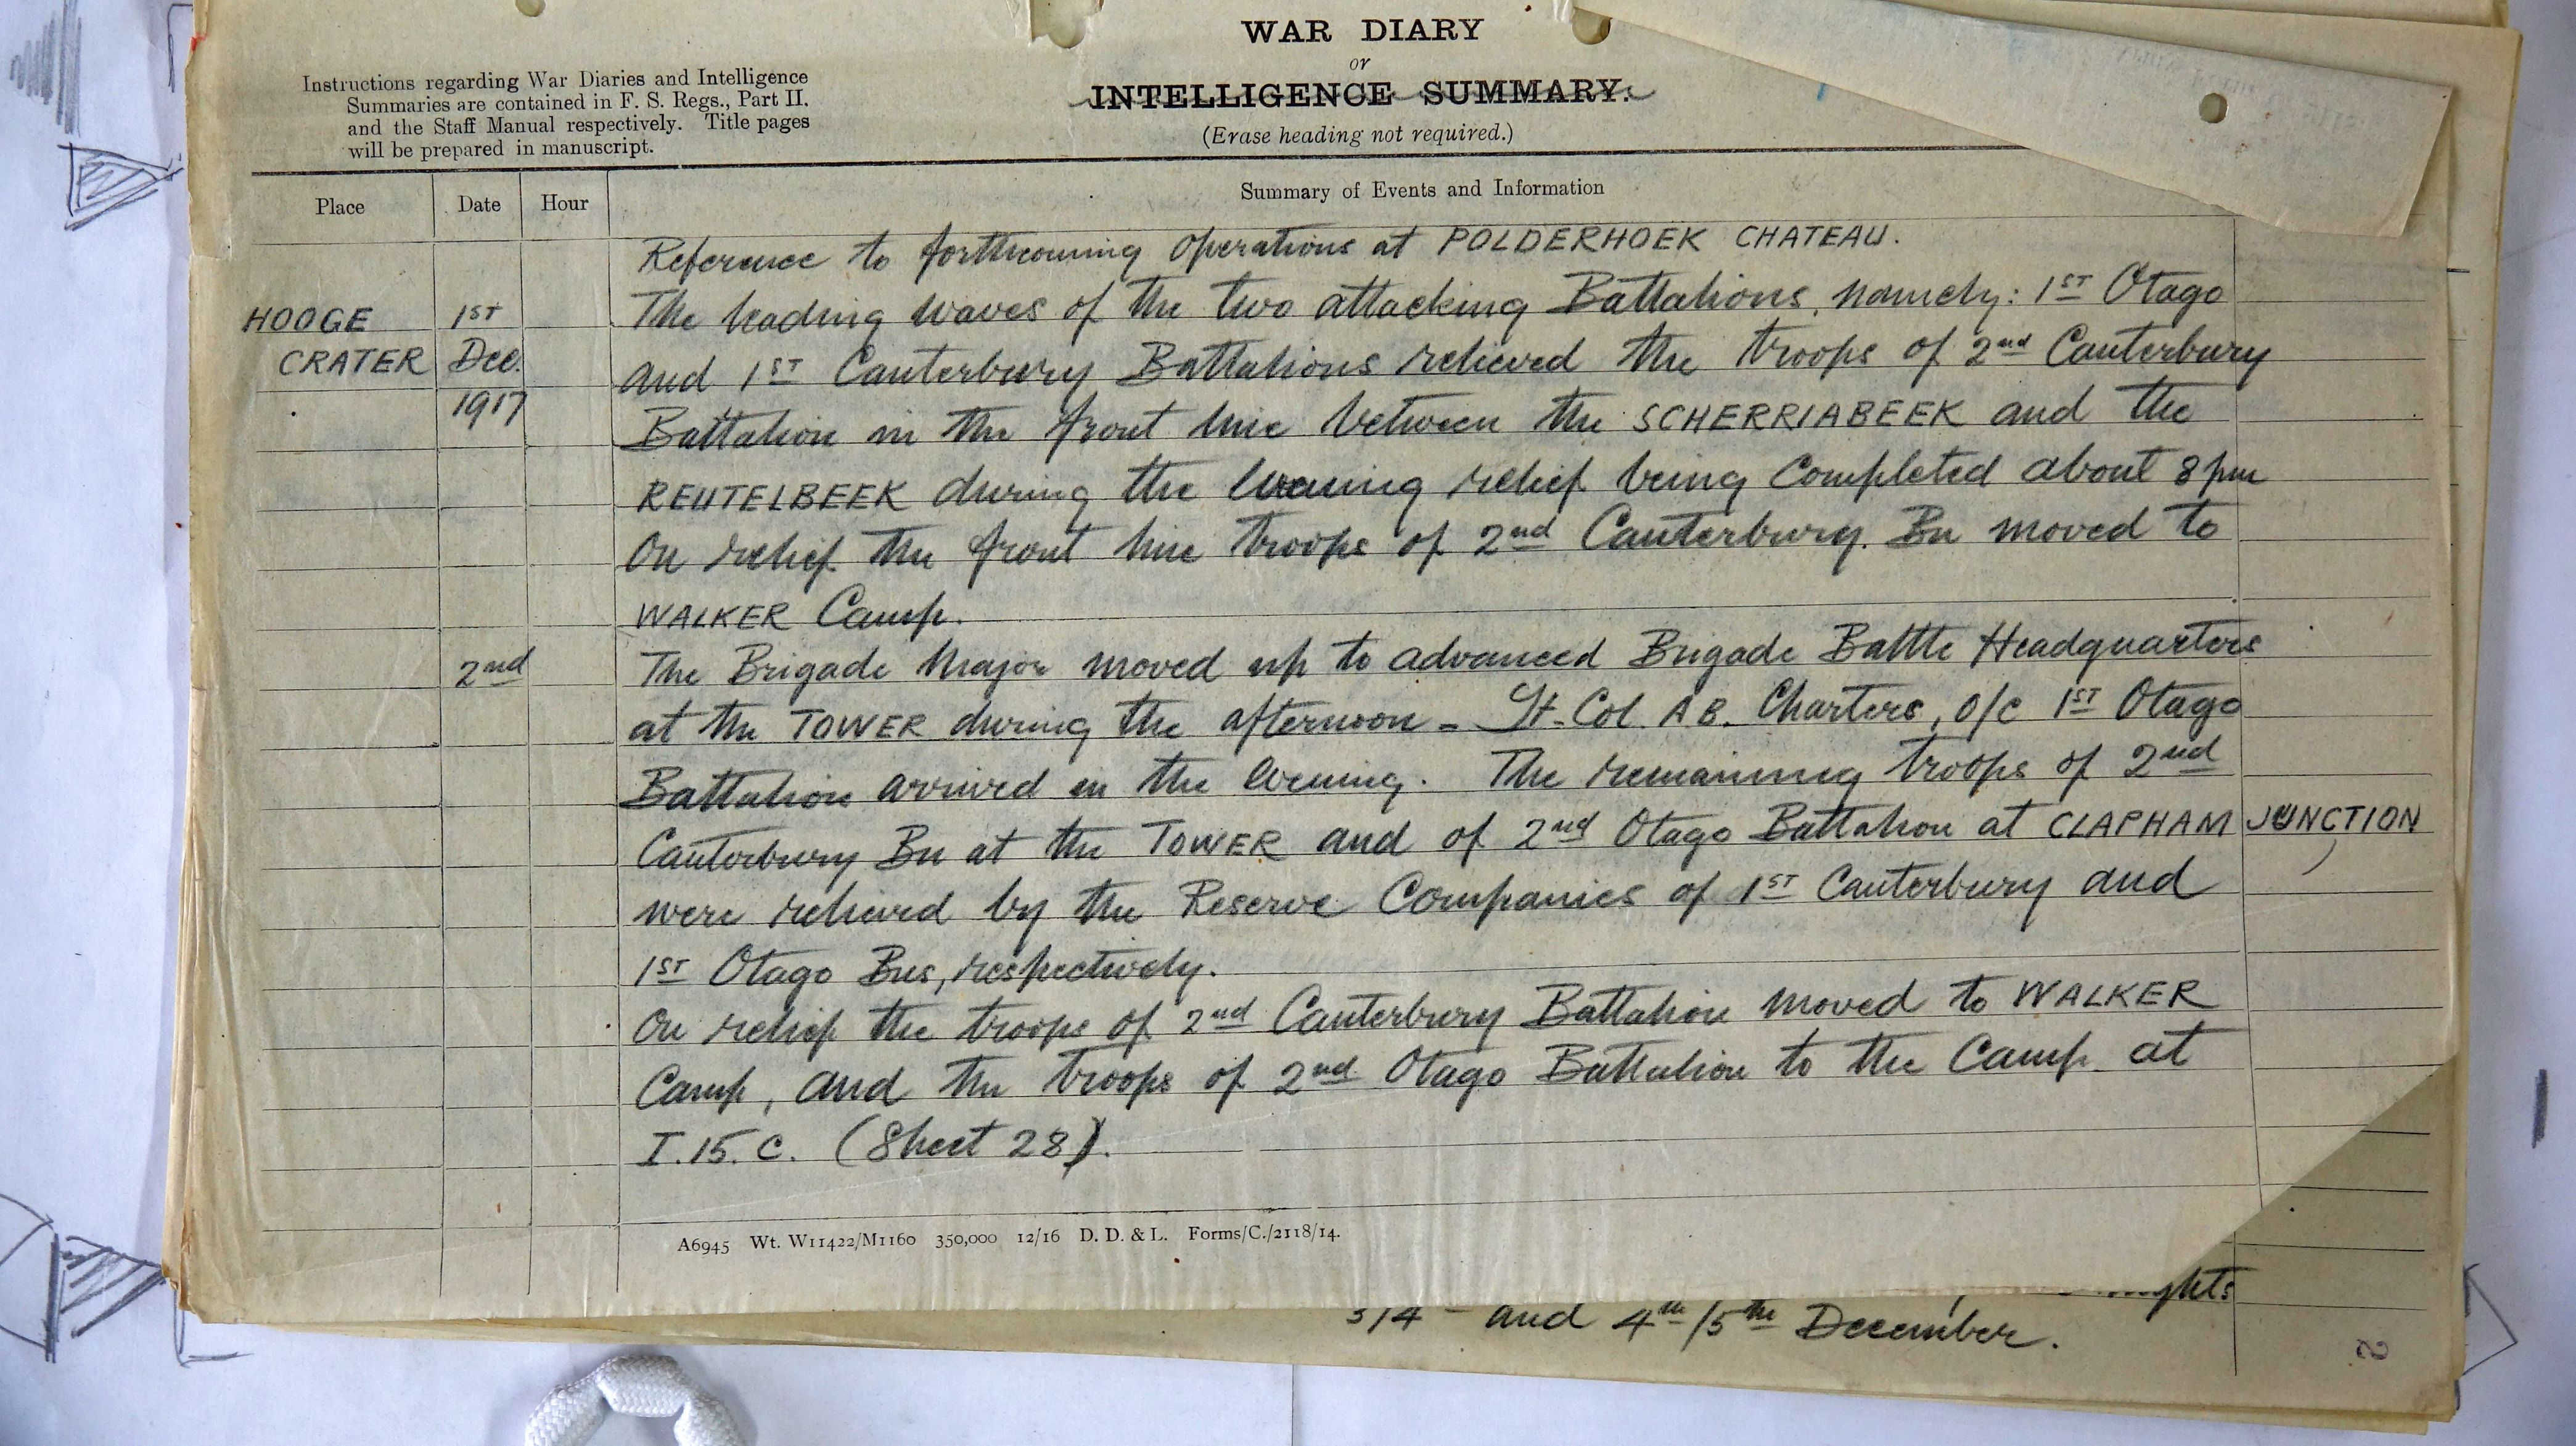 WAR DIARY
or
INTELLIGENCE SUMMARY.
(Erase heading not required.)
Instructions regarding War Diaries and Intelligence
Summaries are contained in F. S. Regs., Part II.
and the Staff Manual respectively. Title pages
will be prepared in manuscript.
Place Date Hour Summary of Events and Information
Reference to forthcoming operations at POLDERHOEK CHATEAU.
HOOGE 1ST The leading waves of the two attacking Battalions, namely: 1ST Otago
CRATER Dec. and 1ST Canterbury Battalions relieved the troops of 2nd Canterbury
1917 Battalion in the front line between the SCHERRIABEEK and the
REUTELBEEK during the evening relief being completed about 8 pm
On relief the front line troops of 2nd Canterbury. Bn moved to
WALKER Camp.
2nd The Brigade Major moved up to advanced Brigade Battle Headquarters
at the TOWER during the afternoon - Lt-Col. A B. Charters, O/C 1ST Otago
Battalion arrived in the evening. The remaining troops of 2nd
Canterbury Bn at the TOWER and of 2nd Otago Battalion at CLAPHAM JUNCTION
were relieved by the Reserve Companies of 1ST Canterbury and
1ST Otago Bns, respectively.
On relief the troops of 2nd Canterbury Battalion moved to WALKER
Camp, and the troops of 2nd Otago Battalion to the Camp at
I.15.C. (Sheet 28).
A6945 Wt. W11422/M1160 350,000 12/16 D. D. & L. Forms/C./2118/14.
3/4 and 4th/5th December.